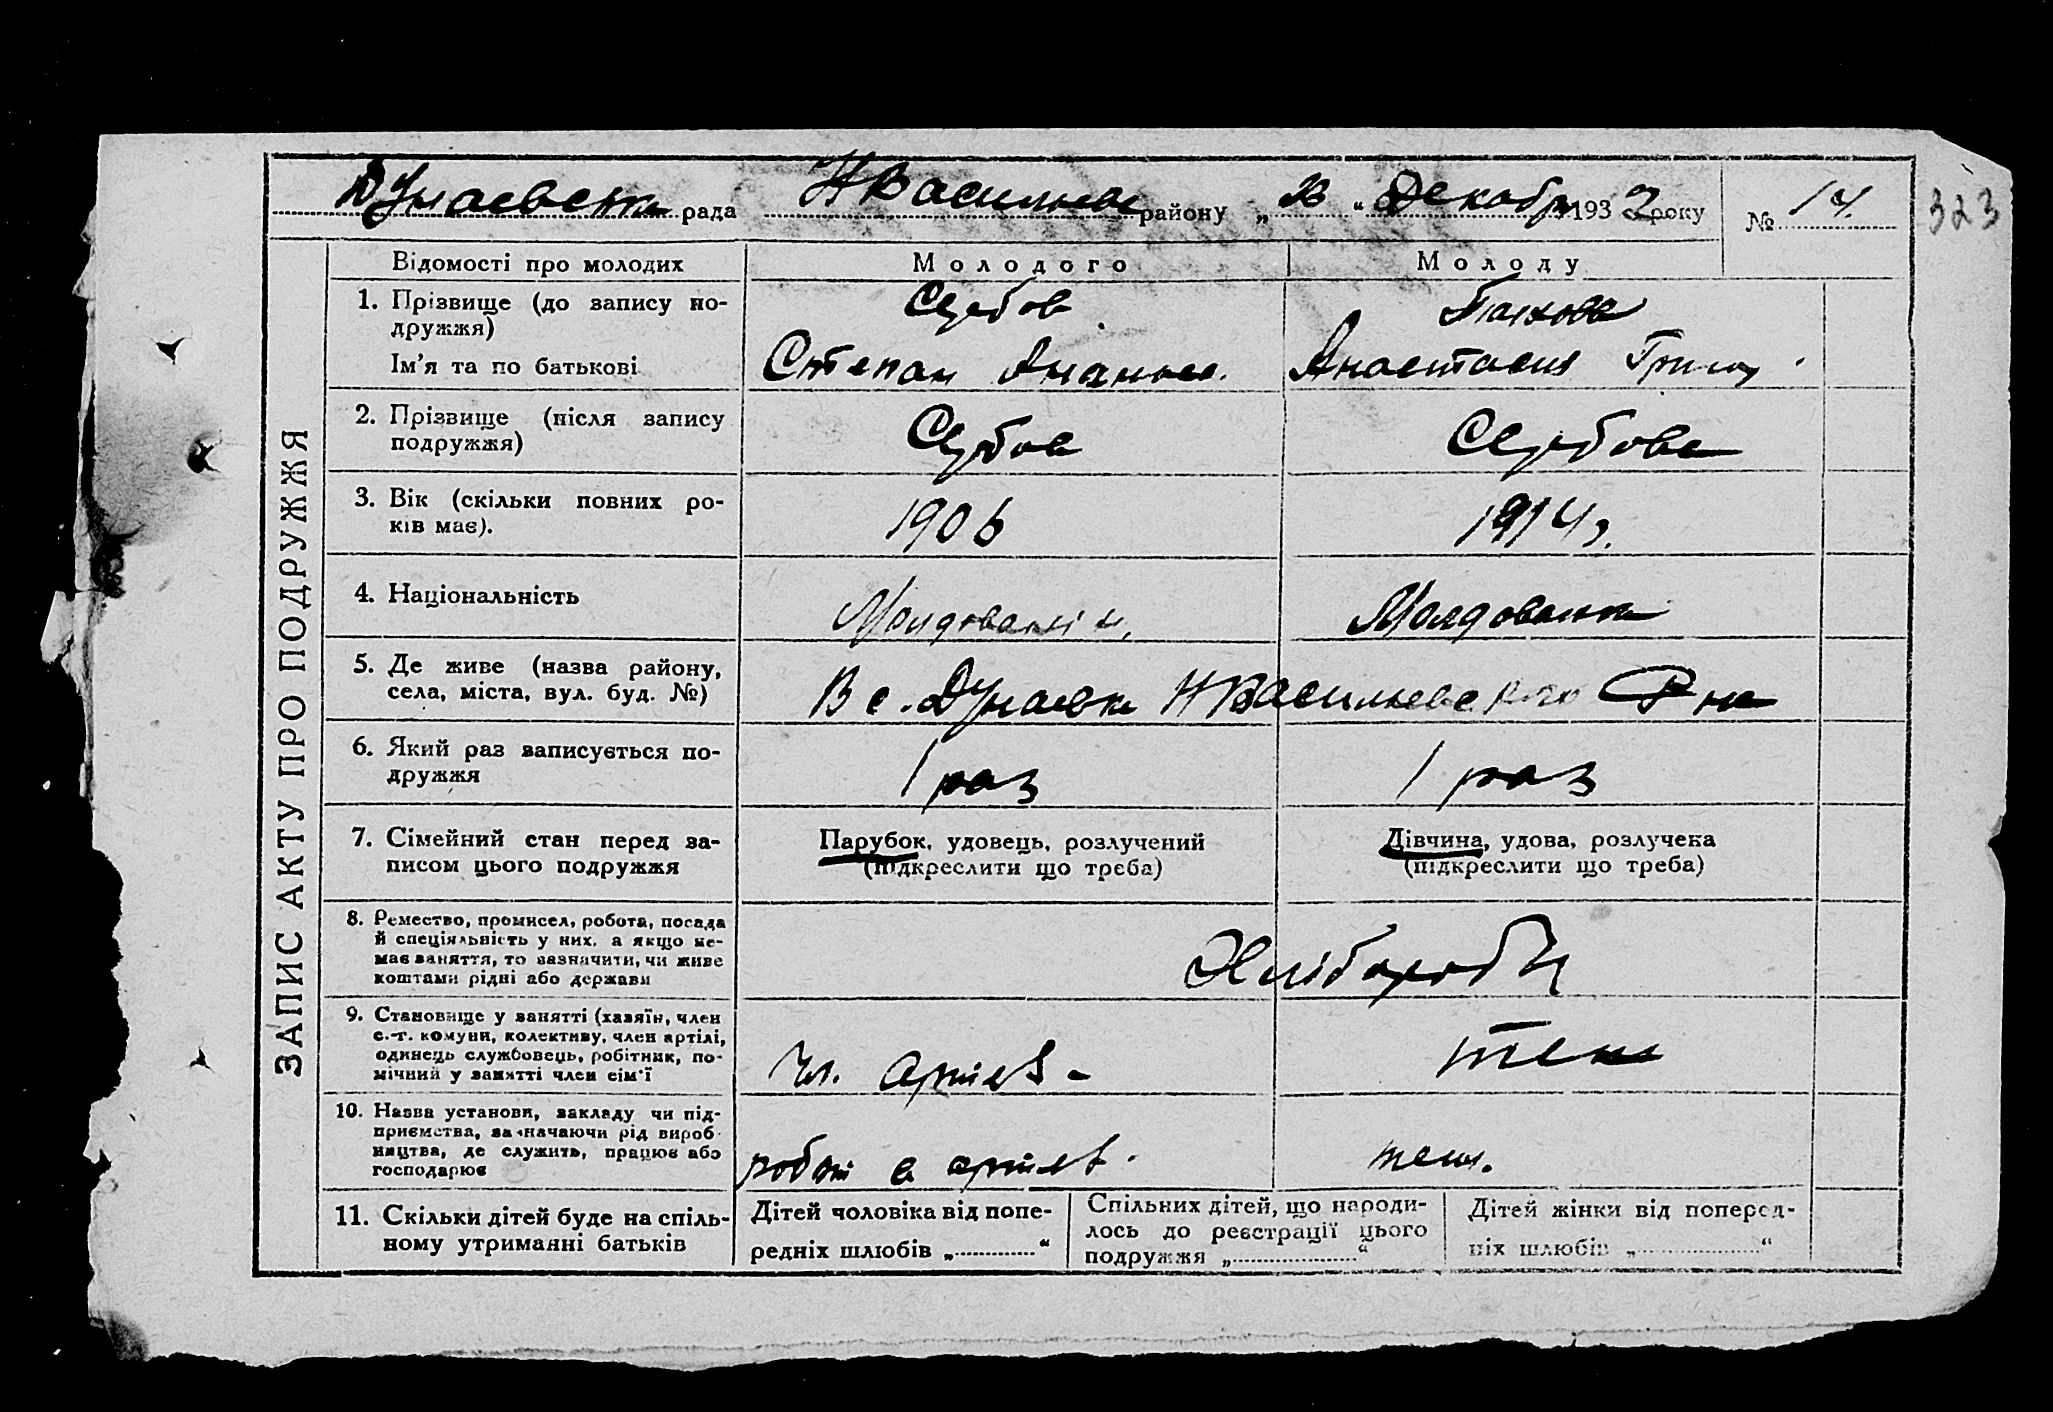 Дунаевска рада НВасильевс району „ 28 “ Декабря 1932 року № 14.
323
ЗАПИС АКТУ ПРО ПОДРУЖЖЯ
Відомості про молодих Молодого Молоду
1. Прізвище (до запису по-
дружжя) Сербов
Ім'я та по батькові Степан Ананьев. Анастасия Григор.
2. Прізвище (після запису
подружжя) Сербов Сербова
3. Вік (скільки повних ро-
ків має). 1906 1914г.
4. Національність Молдованин. Молдованка
5. Де живе (назва району,
села, міста, вул. буд. №) В с. Дунаевка НВасильевского Рна
6. Який раз записується по-
дружжя 1 раз 1 раз
7. Сімейний стан перед за-
писом цього подружжя
Парубок, удовець, розлучений
(підкреслити що треба)
Дівчина, удова, розлучена
(підкреслити що треба)
8. Ремество, промисел, робота, посада
й спеціяльність у них, а якщо не-
має заняття, то зазначити, чи живе
коштами рідні або держави
Хлібороби
9. Становище у занятті (хазяїн, член
с.-г. комуни, колективу, член артілі,
одинець службовець, робітник, по-
мічний у занятті член сім'ї
Чл. артелі
теж
10. Назва установи, закладу чи під-
приємства, зазначаючи рід вироб-
ництва, де служить, працює або
господарює
робит в артелі.
теж.
11. Скільки дітей буде на спіль-
ному утриманні батьків
Дітей чоловіка від попе-
редніх шлюбів „ “
Спільних дітей, що народи-
лось до реєстрації цього
подружжя „ “
Дітей жінки від поперед-
ніх шлюбів „ “